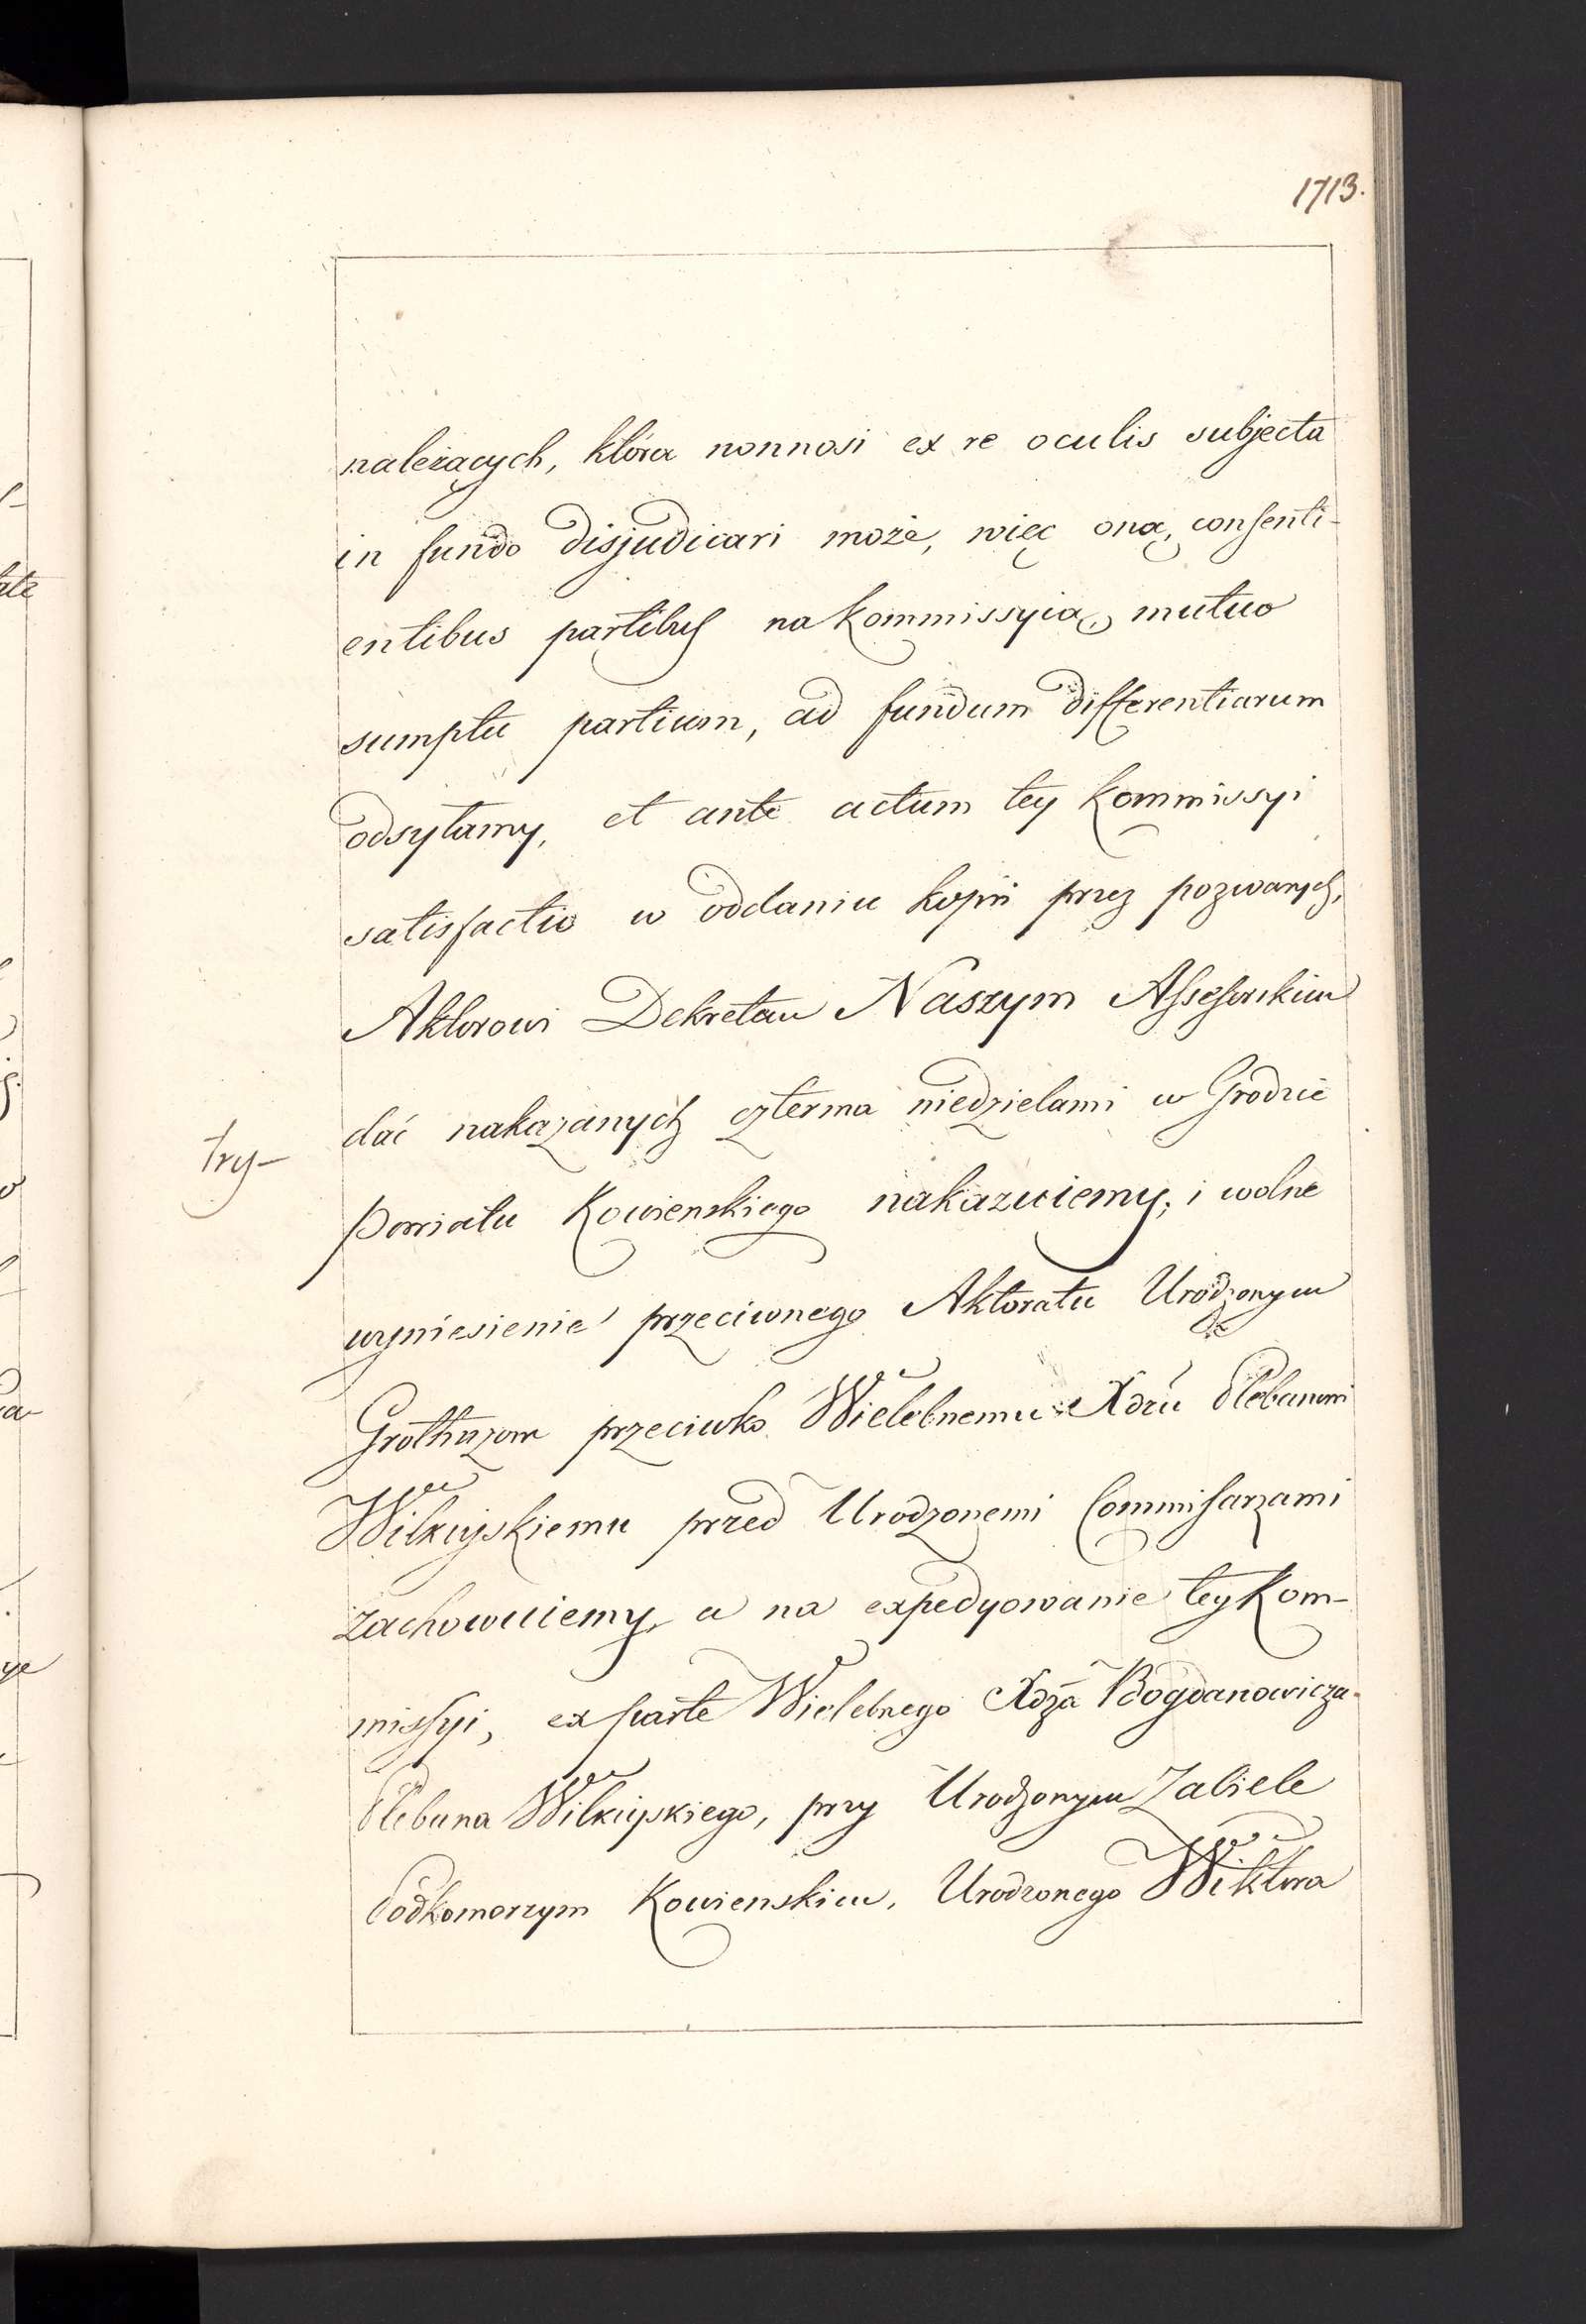 1713.
należących, która nonnosi ex re oculis subjecta
in fundo disjudicari może, więc oną, consenti-
entibus partibus na kommissyią, mutuo
sumptu partium, ad fundum differentiarum
odsyłamy, et ante actum tey Kommissyi
satisfactio w oddaniu kopii przez pozwanych,
Aktorowi Dekretem Naszym Assessorskim
dać nakazanych czterma niedzielami w Grodzie
try-
Powiatu Kowienskiego nakazuiemy; i wolne
wyniesienie przeciwnego Aktoratu Urodzonym
Grothuzom przeciwko Wielebnemu Xdzu Plebanowi
Wilkiyskiemu przed Urodzonemi Commissarzami
zachowuiemy, a na expedyowanie tey Kom-
missyi, ex parte Wielebnego Xdza Bogdanowicza
Plebana Wilkiyskiego, przy Urodzonym Zabiele
Podkomorzym Kowienskim, Urodzonego Wiktora